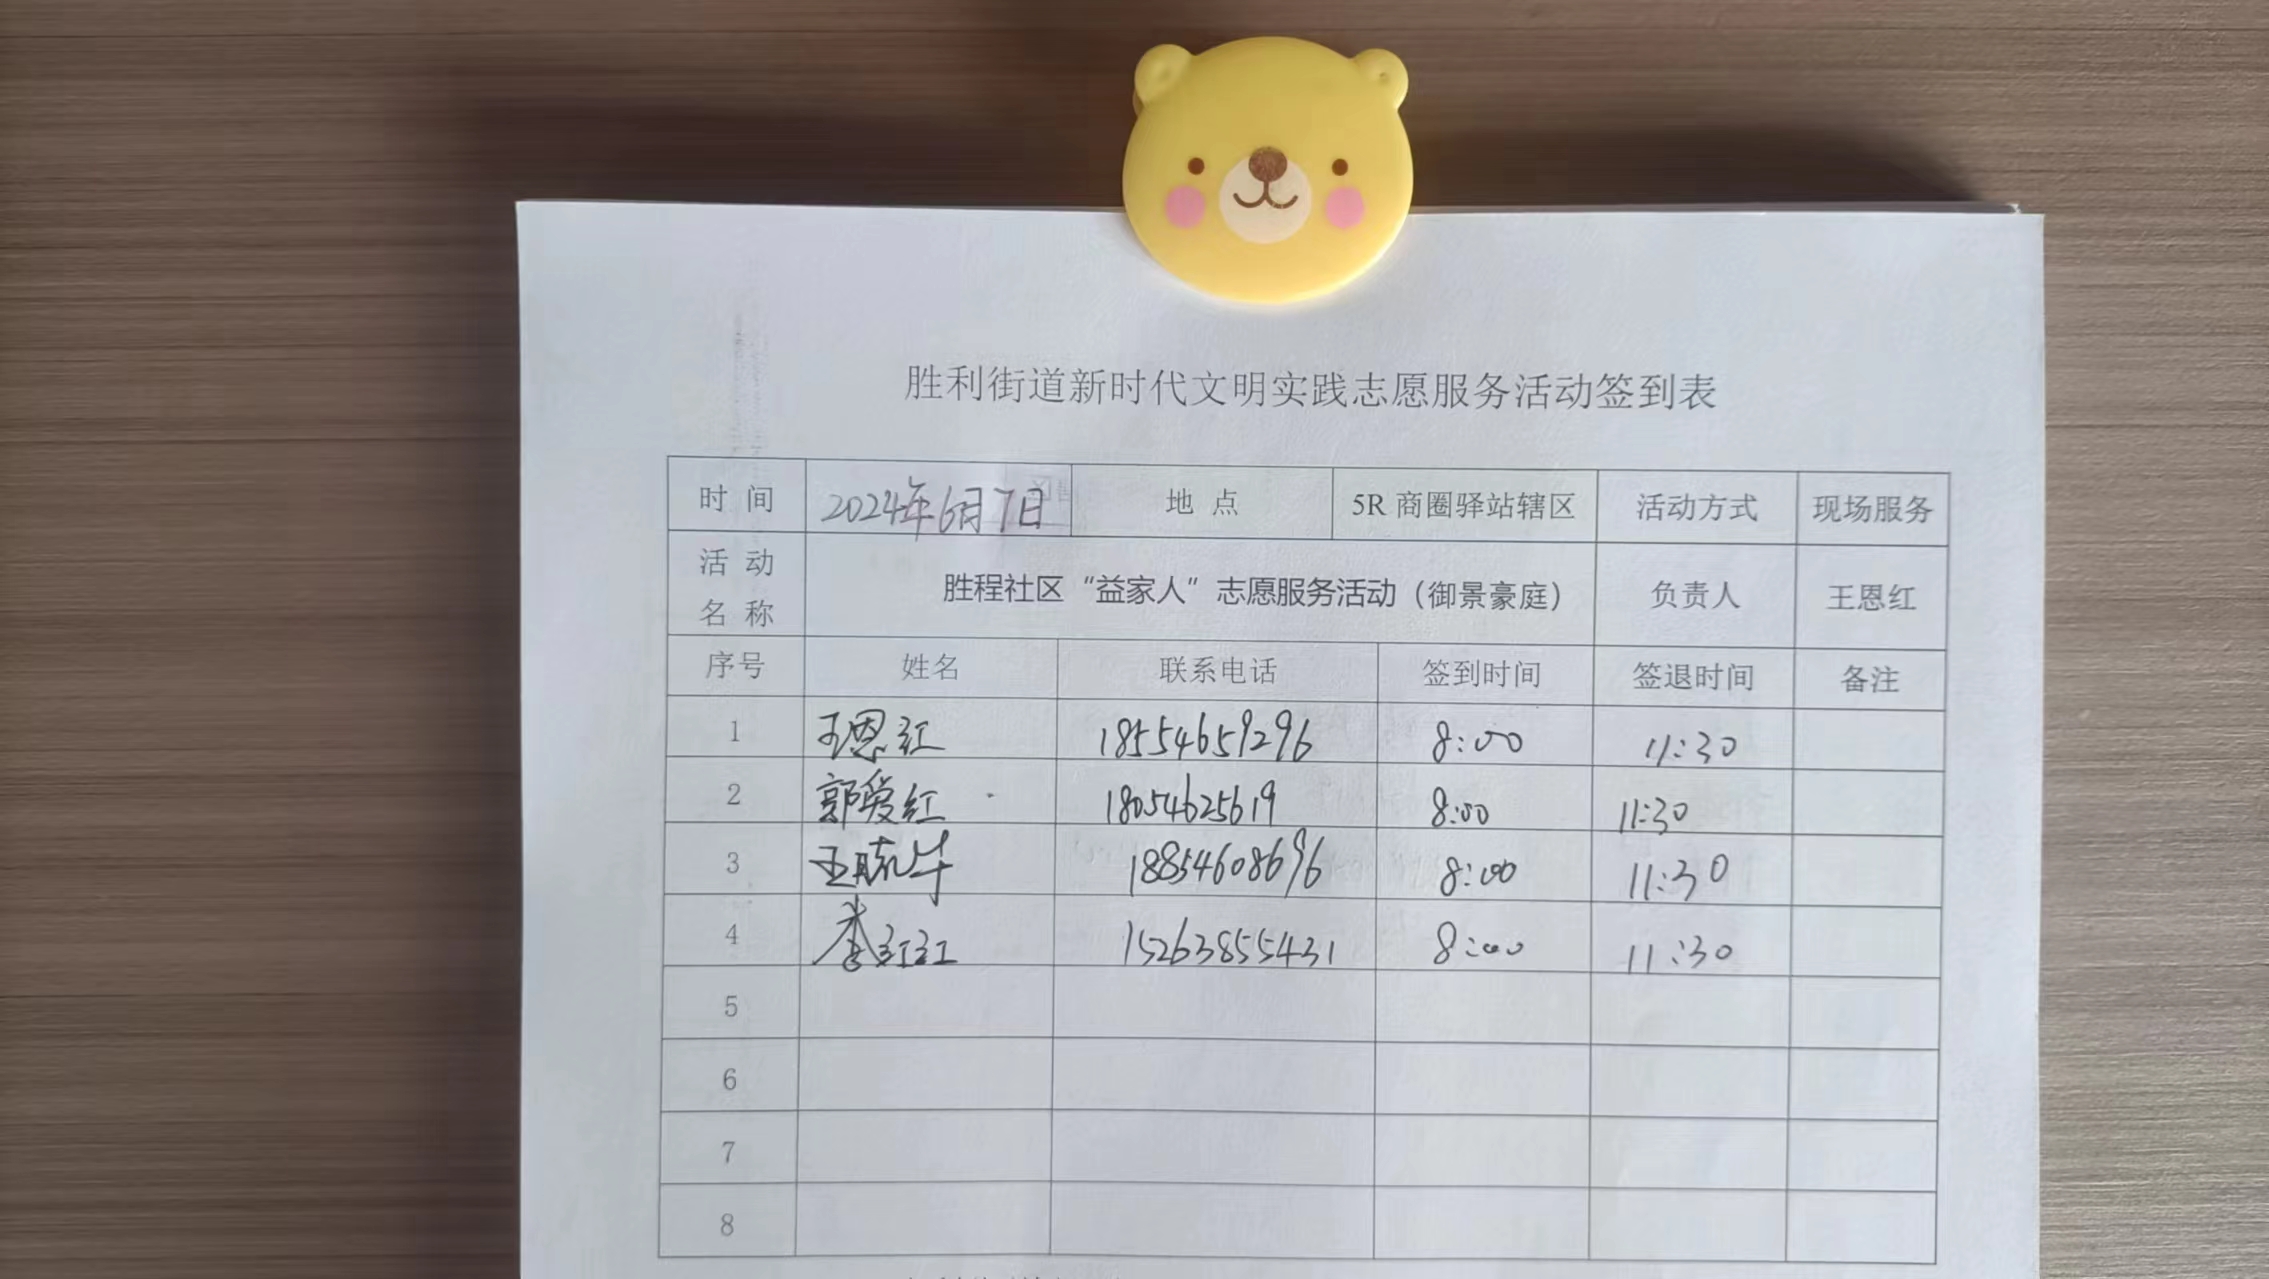 胜利街道新时代文明实践志愿服务活动签到表
时 间 2024年6月7日 地 点 5R 商圈驿站辖区 活动方式 现场服务
活 动 名 称 胜程社区“益家人”志愿服务活动（御景豪庭） 负责人 王恩红
序号 姓名 联系电话 签到时间 签退时间 备注
1 王恩红 18554659296 8:00 11:30
2 郭爱红 18054625619 8:00 11:30
3 18854608696 8:00 11:30
4 李红红 15263855431 8:00 11:30
5
6
7
8